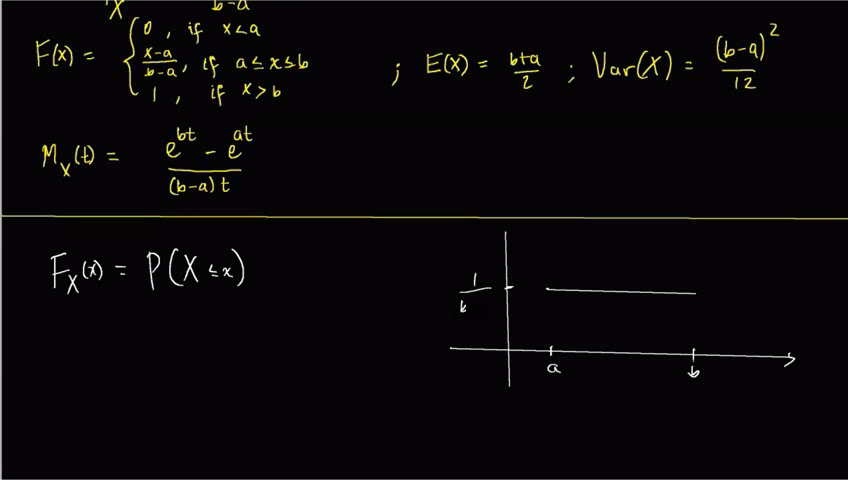 X b-a
F(x) = { 0 , if x<a
x-a/b-a , if a≤x≤b
1 , if x>b
; E(X) = b+a/2 ; Var(X) = (b-a)²/12
M_X(t) = e^bt - e^at/(b-a)t
F_X(x) = P(X≤x)
1/b
a b